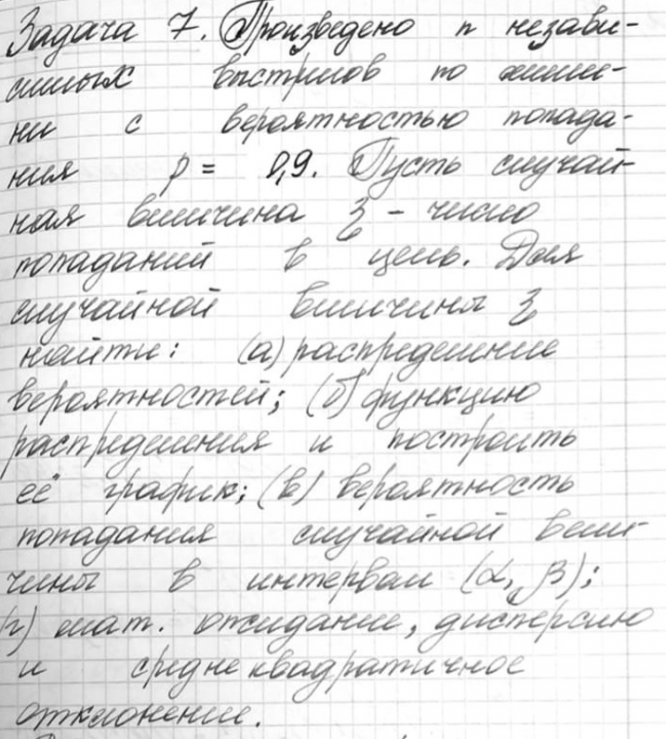 Задача 7. Произведено n незави-
симых выстрелов по мише-
ни с вероятностью попада-
ния p = 0,9. Пусть случай-
ная величина ξ - число
попаданий в цель. Для
случайной величины ξ
найти: (а) распределение
вероятностей; (б) функцию
распределения и построить
её график; (в) вероятность
попадания случайной вели-
чины в интервал (α, β);
(г) мат. ожидание, дисперсию
и средне квадратичное
отклонение.